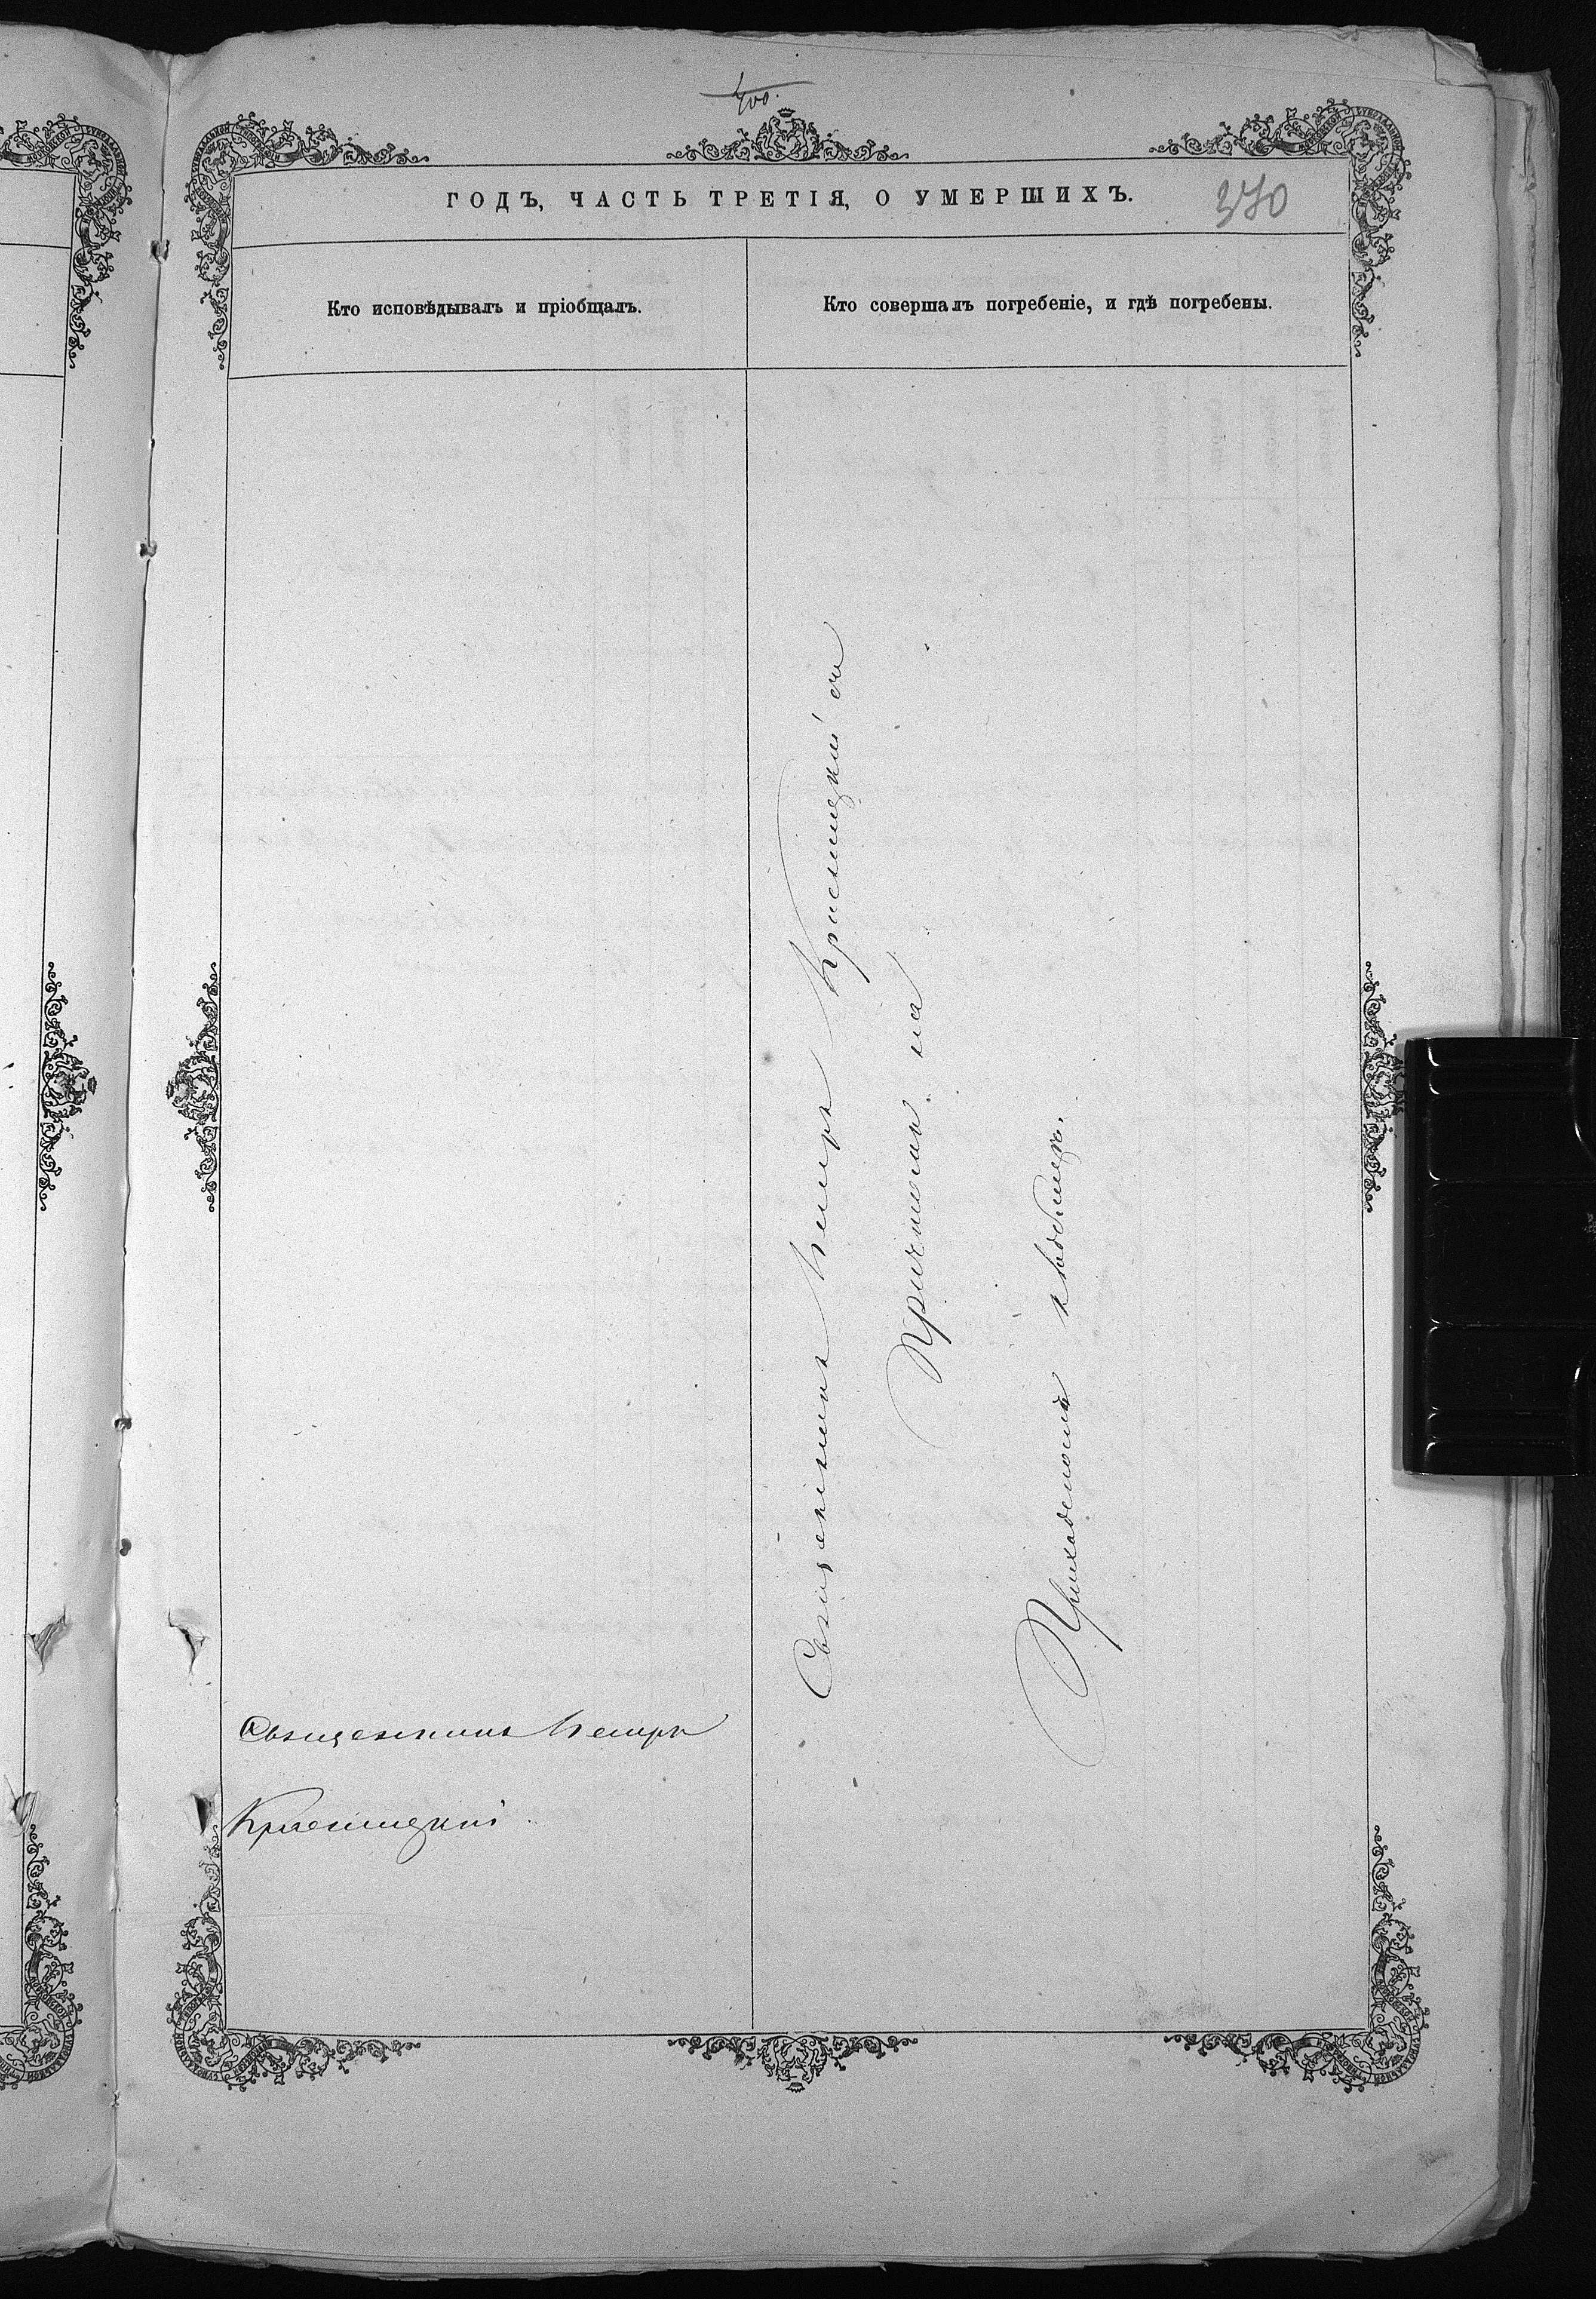 400.
ГОДЪ, ЧАСТЬ ТРЕТІЯ, О УМЕРШИХЪ.
370
Кто исповѣдывалъ и пріобщалъ.
Кто совершалъ погребеніе, и гдѣ погребены.
Священникъ Петръ
Красницкій
Священникъ Петръ Красницкій съ
Причтомъ на
Приходскомъ кладбищѣ.